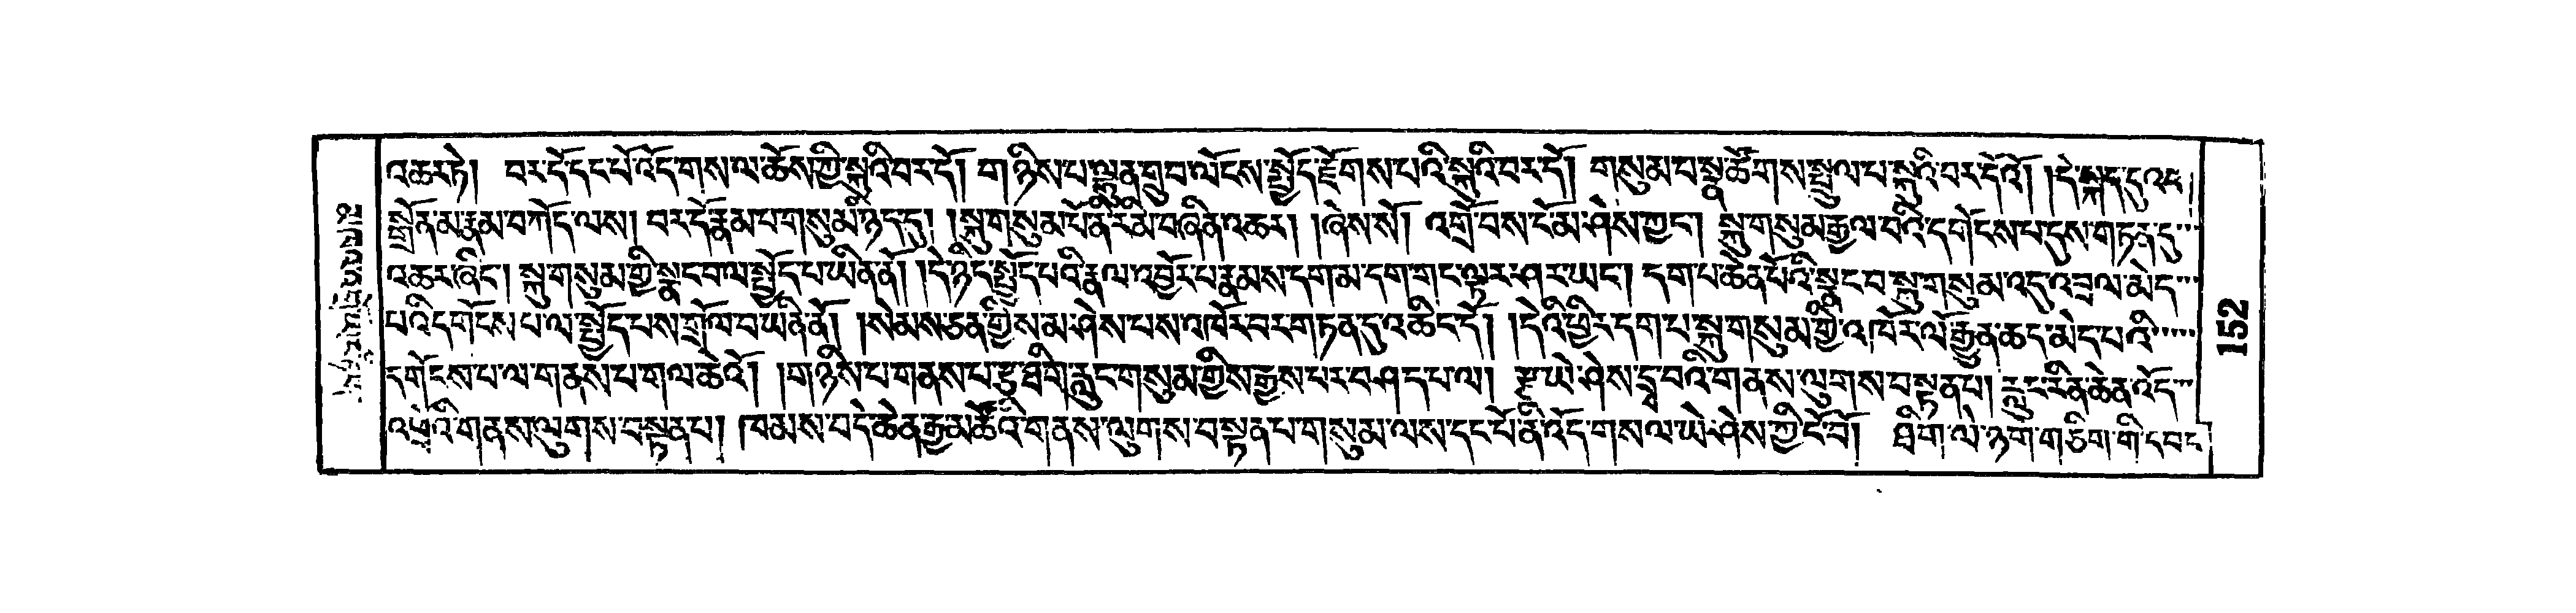 འཆར་ཏེ། བར་དོ་དང་པོ་འོད་གསལ་ཆོས་ཀྱི་སྐུའི་བར་དོ། གཉིས་པ་ལྷུན་གྲུབ་ལོངས་སྤྱོད་རྫོགས་པའི་སྐུའི་བར་དོ། གསུམ་པ་སྣ་ཚོགས་སྤྲུལ་པ་སྐུའི་བར་དོའོ། །དེ་སྐད་དུ་འཕ
སྤྲོན་མ་རྣམ་བཀོད་ལས། བར་དོ་རྣམ་པ་གསུམ་ཉིད་དུ། །སྐུ་གསུམ་པོ་ནི་རིམ་བཞིན་འཆར། །ཞེས་སོ། འགྲོ་བས་ངོ་མ་ཤེས་ཀྱང་། སྐུ་གསུམ་རྒྱལ་བའི་དགོངས་པ་དུས་གཏན་དུ་
འཆར་ཞིང་། སྐུ་གསུམ་གྱི་སྣང་བ་ལ་སྤྱོད་པ་ཡིན་ནོ། །དེ་ཉིད་སྤྱོད་པའི་རྣལ་འབྱོར་པ་རྣམས་དག་མ་དག་གང་ལྟར་ཤར་ཡང་། དག་པ་ཆེན་པོའི་སྣང་བ་སྐུ་གསུམ་འདུ་འབྲལ་མེད་
པའི་དགོངས་པ་ལ་སྤྱོད་པས་གྲོལ་བ་ཡིན་ནོ། །སེམས་ཅན་གྱིས་མ་ཤེས་པས་འཁོར་བར་གཏན་དུ་འཆིང་ངོ་། །དེའི་ཕྱིར་དག་པ་སྐུ་གསུམ་གྱི་འཁོར་ལོ་རྒྱུན་ཆད་མེད་པའི་
དགོངས་པ་ལ་གནས་པ་གལ་ཆེའོ། །གཉིས་པ་གནས་པ་རྩ་ཐིག་རླུང་གསུམ་གྱིས་རྒྱས་པར་བཤད་པ་ལ། རྩ་ཡེ་ཤེས་དྲྭ་བའི་གནས་ལུགས་བསྟན་པ། རླུང་རིན་ཆེན་འོད་
འཕྲོའི་གནས་ལུགས་བསྟན་པ། ཁམས་བདེ་ཆེན་རྒྱ་མཚོའི་གནས་ལུགས་བསྟན་པ་གསུམ་ལས་དང་པོ་ནི་འོད་གསལ་ཡེ་ཤེས་ཀྱི་ངོ་བོ། ཐིག་ལེ་ཉག་གཅིག་གི་དབང